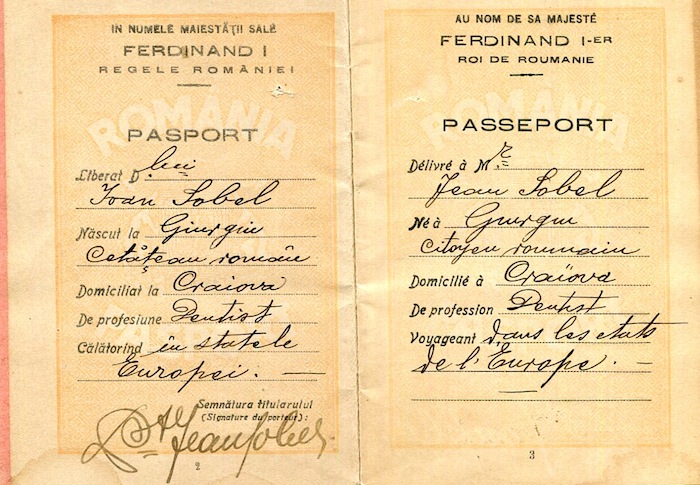 IN NUMELE MAIESTĂȚII SALE
FERDINAND I
REGELE ROMÂNIEI
ROMÂNIA
PASPORT
Liberat D lui
Ioan Sobel
Născut la Giurgiu
Cetățean român
Domiciliat la Craiova
De profesiune Dentist
Călătorind în statele
Europei. —
Semnătura titularului
(Signature du porteur):
Jean Sobel
2
AU NOM DE SA MAJESTÉ
FERDINAND I-ER
ROI DE ROUMANIE
ROMÂNIA
PASSEPORT
Délivré à M r
Jean Sobel
Né à Giurgiu
Citoyen roumain
Domicilié à Craïova
De profession Dentist
Voyageant dans les etats
de l'Europe. —
3